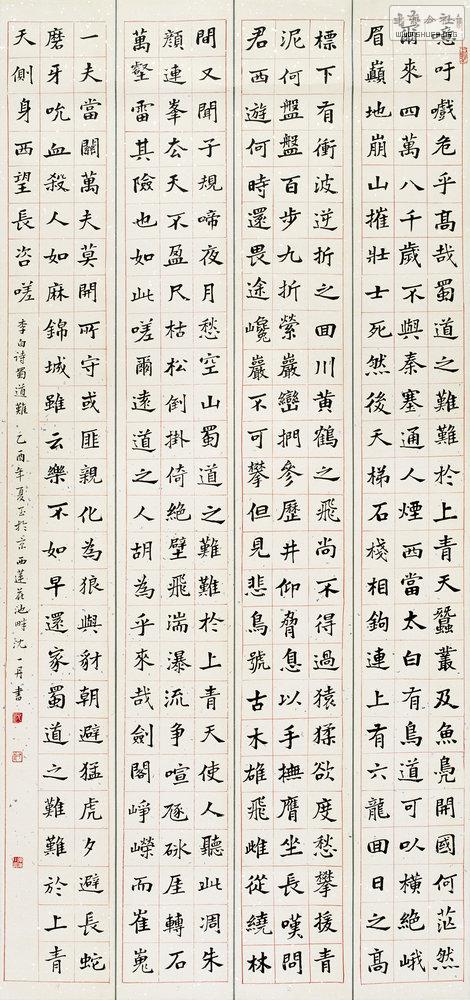 噫吁戲危乎髙哉蜀道之難難於上青天蠶叢及魚鳧開國何茫然
爾來四萬八千歲不與秦塞通人煙西當太白有鳥道可以橫絶峨
眉巔地崩山摧壯士死然後天梯石棧相鉤連上有六龍回日之髙
標下有衝波逆折之回川黃鶴之飛尚不得過猿猱欲度愁攀援青
泥何盤盤百步九折縈巖巒捫參歷井仰脅息以手撫膺坐長嘆問
君西遊何時還畏途巉巖不可攀但見悲鳥號古木雄飛雌從繞林
間又聞子規啼夜月愁空山蜀道之難難於上青天使人聽此凋朱
顔連峯去天不盈尺枯松倒掛倚絶壁飛湍瀑流爭喧豗砯厓轉石
萬壑雷其險也如此嗟爾遠道之人胡為乎來哉劍閣崢嶸而崔嵬
一夫當關萬夫莫開所守或匪親化為狼與豺朝避猛虎夕避長蛇
磨牙吮血殺人如麻錦城雖云樂不如早還家蜀道之難難於上青
天側身西望長咨嗟
李白诗蜀道難 乙酉年夏至於京西蓮花池畔沈一丹書
WWW.SHUFA.ORG